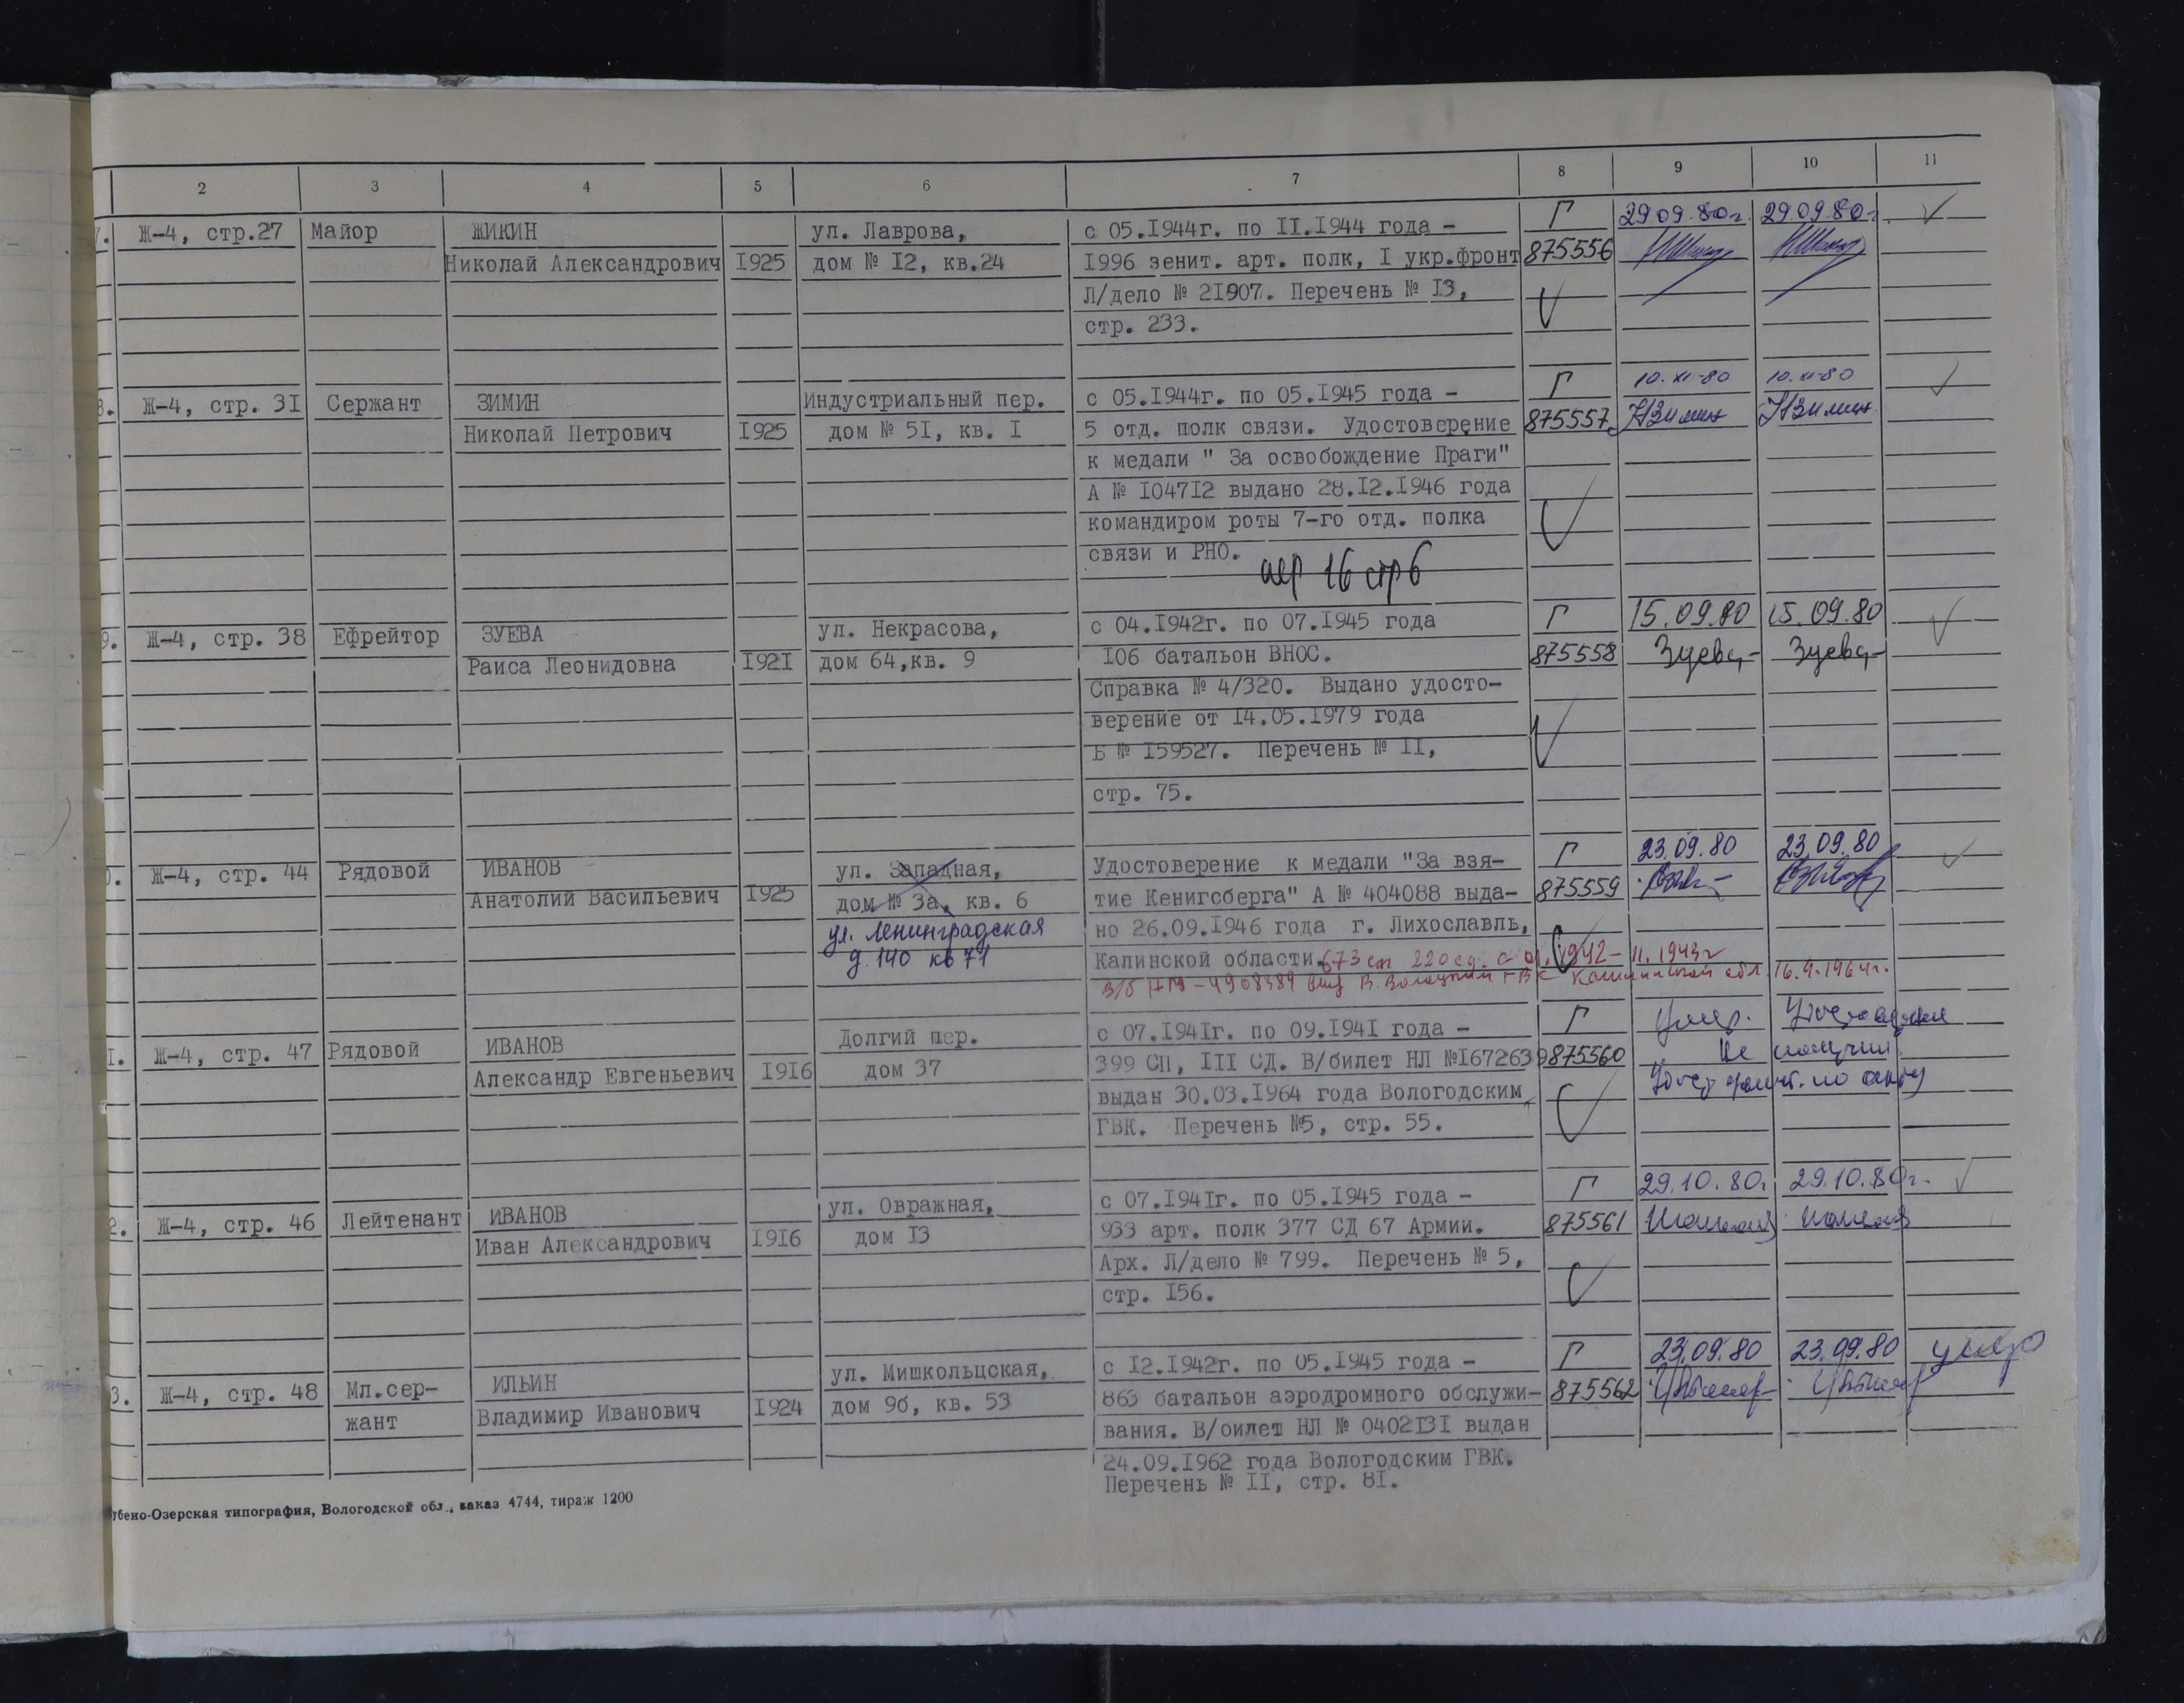 2 3 4 5 6 7 8 9 10 11
7. Ж-4, стр.27 Майор ЖИКИН ул. Лаврова, с 05.I944г. по II.I944 года – Г 29.09.80г. 29.09.80г.
Николай Александрович I925 дом № I2, кв.24 I996 зенит. арт. полк, I укр.фронт 875556
Л/дело № 2I907. Перечень № I3,
стр. 233.
8. Ж-4, стр. 3I Сержант ЗИМИН Индустриальный пер. с 05.I944г. по 05.I945 года – Г 10.XI-80 10.XI-80
Николай Петрович I925 дом № 5I, кв. I 5 отд. полк связи. Удостоверение 875557 НЗимин НЗимин
к медали " За освобождение Праги"
А № I047I2 выдано 28.I2.I946 года
командиром роты 7-го отд. полка
связи и РНО.
пер 16 стр 6
9. Ж-4, стр. 38 Ефрейтор ЗУЕВА ул. Некрасова, с 04.I942г. по 07.I945 года Г 15.09.80 15.09.80
Раиса Леонидовна I92I дом 64,кв. 9 I06 батальон ВНОС. 875558 Зуева Зуева
Справка № 4/320. Выдано удосто-
верение от I4.05.I979 года
Б № I59527. Перечень № II,
стр. 75.
0. Ж-4, стр. 44 Рядовой ИВАНОВ ул. Западная, Удостоверение к медали "За взя- Г 23.09.80 23.09.80
Анатолий Васильевич I925 дом № 3а, кв. 6 тие Кенигсберга" А № 404088 выда- 875559
ул. Ленинградская но 26.09.I946 года г. Лихославль,
д. 140 кв 71 Калинской области. 673 сп 220 сд. с 01.1942 – 11.1943г
в/б НЛ – 4908389 выд В.Волоцким ГВК Калининской обл. 16.4.1964г.
1. Ж-4, стр. 47 Рядовой ИВАНОВ Долгий пер. с 07.I94Iг. по 09.I94I года – Г Умер. Удостоверение
Александр Евгеньевич I9I6 дом 37 399 СП, III СД. В/билет НЛ №I672639 875560 не получил.
выдан 30.03.I964 года Вологодским Удост. уничт. по акту
ГВК. Перечень №5, стр. 55.
2. Ж-4, стр. 46 Лейтенант ИВАНОВ ул. Овражная, с 07.I94Iг. по 05.I945 года – Г 29.10.80г. 29.10.80г.
Иван Александрович I9I6 дом I3 933 арт. полк 377 СД 67 Армии. 875561
Арх. Л/дело № 799. Перечень № 5,
стр. I56.
3. Ж-4, стр. 48 Мл.сер- ИЛЬИН ул. Мишкольцская, с I2.I942г. по 05.I945 года – Г 23.09.80 23.09.80
жант Владимир Иванович I924 дом 9б, кв. 53 863 батальон аэродромного обслужи- 875562
вания. В/билет НЛ № 0402I3I выдан
24.09.I962 года Вологодским ГВК.
Перечень № II, стр. 8I.
убено-Озерская типография, Вологодской обл., заказ 4744, тираж 1200